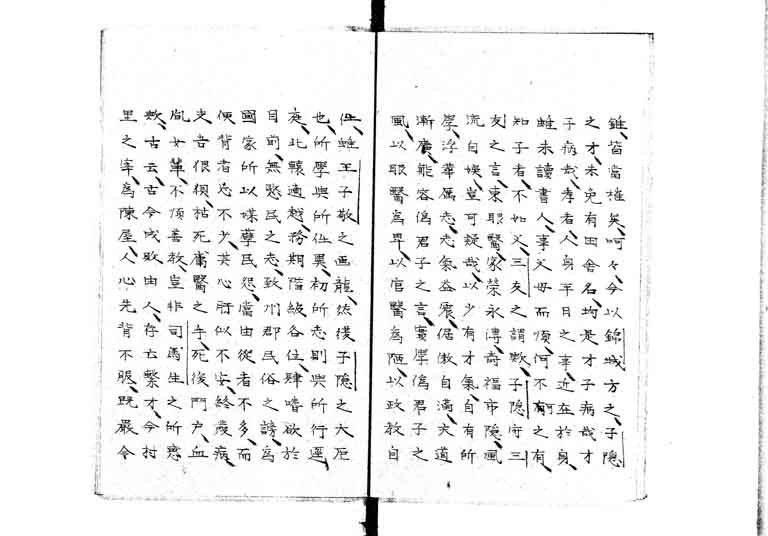 錐笛當權矣呵々今以錦城方之子隱
之才未免有田舍名均是才子病哉才
子病哉孝者人身平日之事近在於身
雖未讀書人事父母而順何不有之有
知子者不如父三友之謂歟子隱守三
友之言東耶醫家榮永傳奇福市隱風
流自娛豈可疑哉以少有才氣自有所
學浮華屬志志氣益震倨傲自滿夫道
漸廣能容偽君子之言實學偽君子之
風以耶醫為畀以官醫為陋以政教自
任雖王子敬之畫龍然後子隱之大厄
也所學與所任異初所志則與所行遷
庭北轅適越務期階級各位肆嗜欲於
目前無愍民之志致州郡民俗之謗為
國家所以媒孽民怨當由從者不多而
便背者忌不少其心術似不安終發病
吏吝佷狠枯死庸醫之手死後門戶血
胤女輩不須善教豈非司馬生之所愆
歟古云古今成敗由人存亡繫才今村
里之宰為陳屋人心先背不服既嚴令